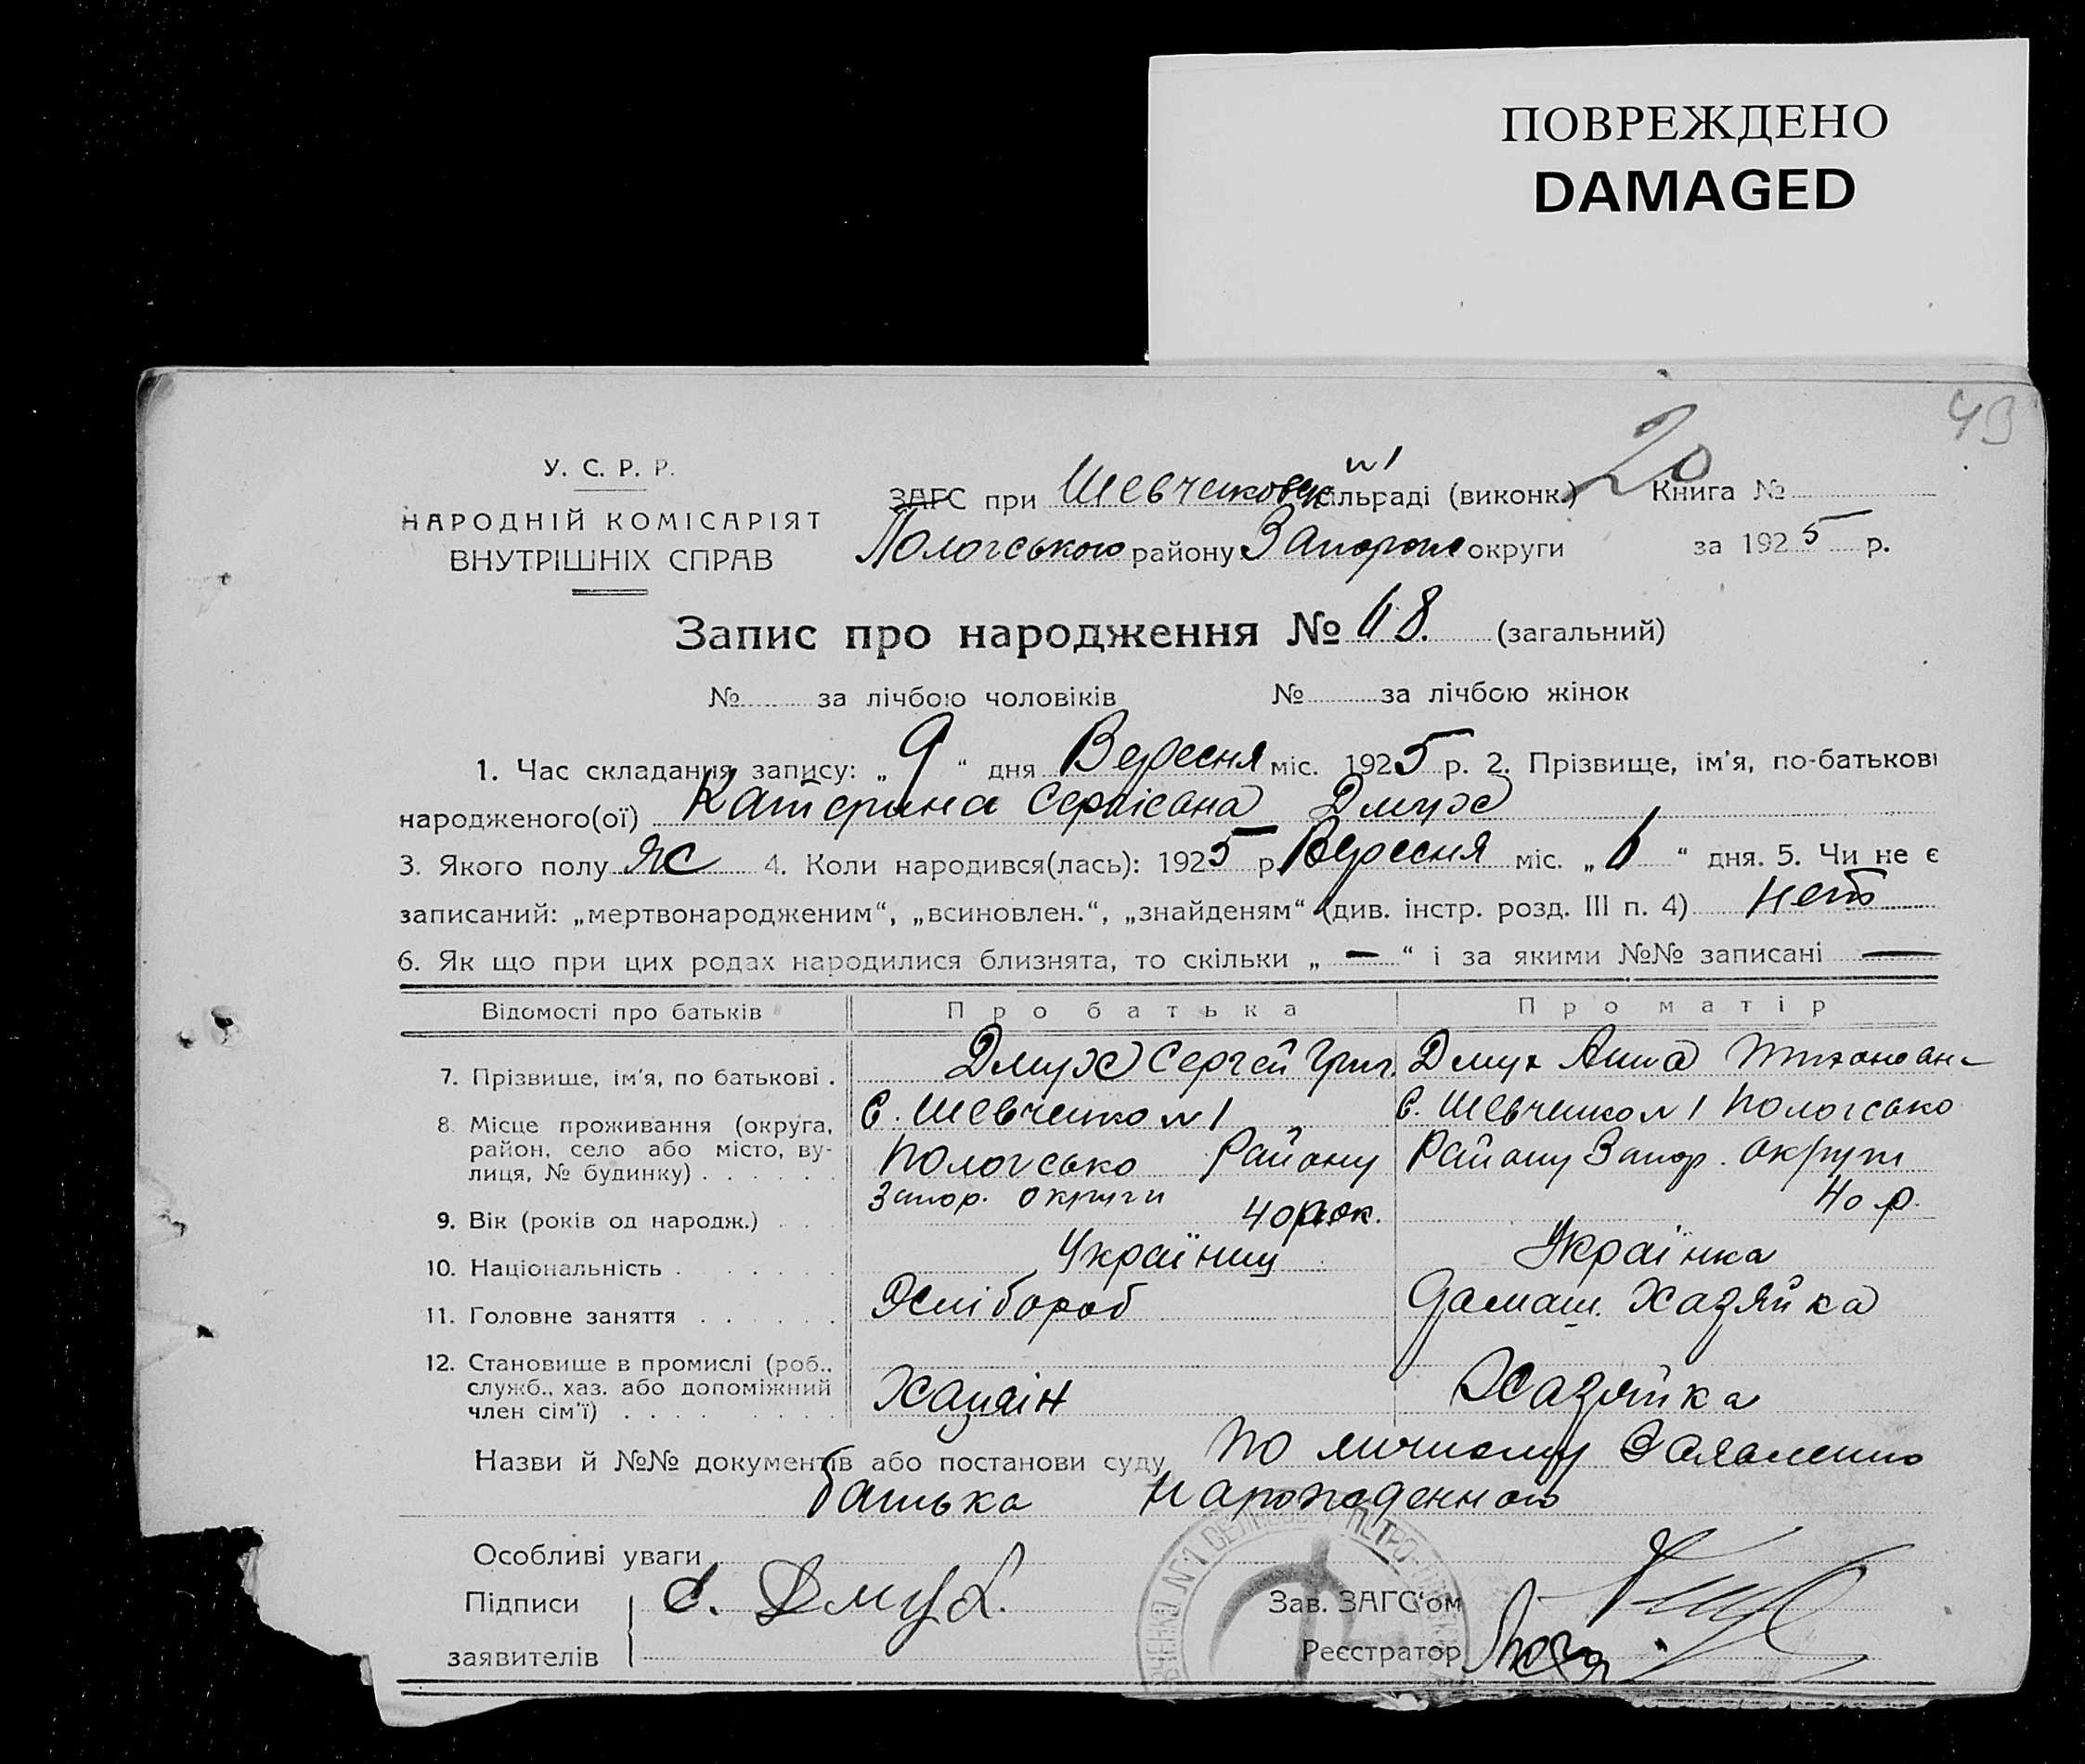 ПОВРЕЖДЕНО
DAMAGED
43
20
У. С. Р. Р.
НАРОДНІЙ КОМІСАРІЯТ
ВНУТРІШНІХ СПРАВ
№ 1
ЗАГС при Шевченковск сільраді (виконк.) Книга №
Пологського району Запорож округи за 1925 р.
Запис про народження № 68. (загальний)
№ за лічбою чоловіків № за лічбою жінок
1. Час складання запису: „9“ дня Вересня міс. 1925 р. 2. Прізвище, ім'я, по-батькові
народженого(ої) Катерина Сергієвна Дмух
3. Якого полу Ж 4. Коли народився(лась): 1925 р. Вересня міс. „6“ дня. 5. Чи не є
записаний: „мертвонародженим“, „всиновлен.“, „знайденям“ (див. інстр. розд. III п. 4) нет
6. Як що при цих родах народилися близнята, то скільки „—“ і за якими №№ записані —
Відомості про батьків Про батька Про матір
7. Прізвище, ім'я, по батькові . Дмух Сергей Григ. Дмух Анна Тихоновна
8. Місце проживання (округа, район, село або місто, вулиця, № будинку) . . . . . .
с. Шевченко № 1 Пологсько Району Запор. округи
с. Шевченко № 1 Пологсько Району Запор. округи
9. Вік (років од народж.) . . 40 рок. 40 р.
10. Національність . . . . . . Українець Українка
11. Головне заняття . . . . . . Хлібороб Дамаш. Хазяйка
12. Становище в промислі (роб., служб., хаз. або допоміжний член сім'ї) . . . .
Хазяін Хазяйка
Назви й №№ документів або постанови суду По личному Заявлению
батька нарожденного
Особливі уваги
Підписи С. Дмух. Зав. ЗАГС'ом
заявителів Реєстратор